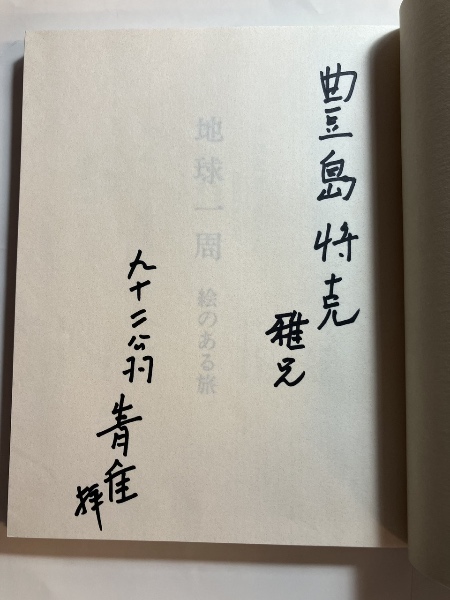 豊島将克
雅兄
地球一周
絵のある旅
九十二翁
青隹
拝